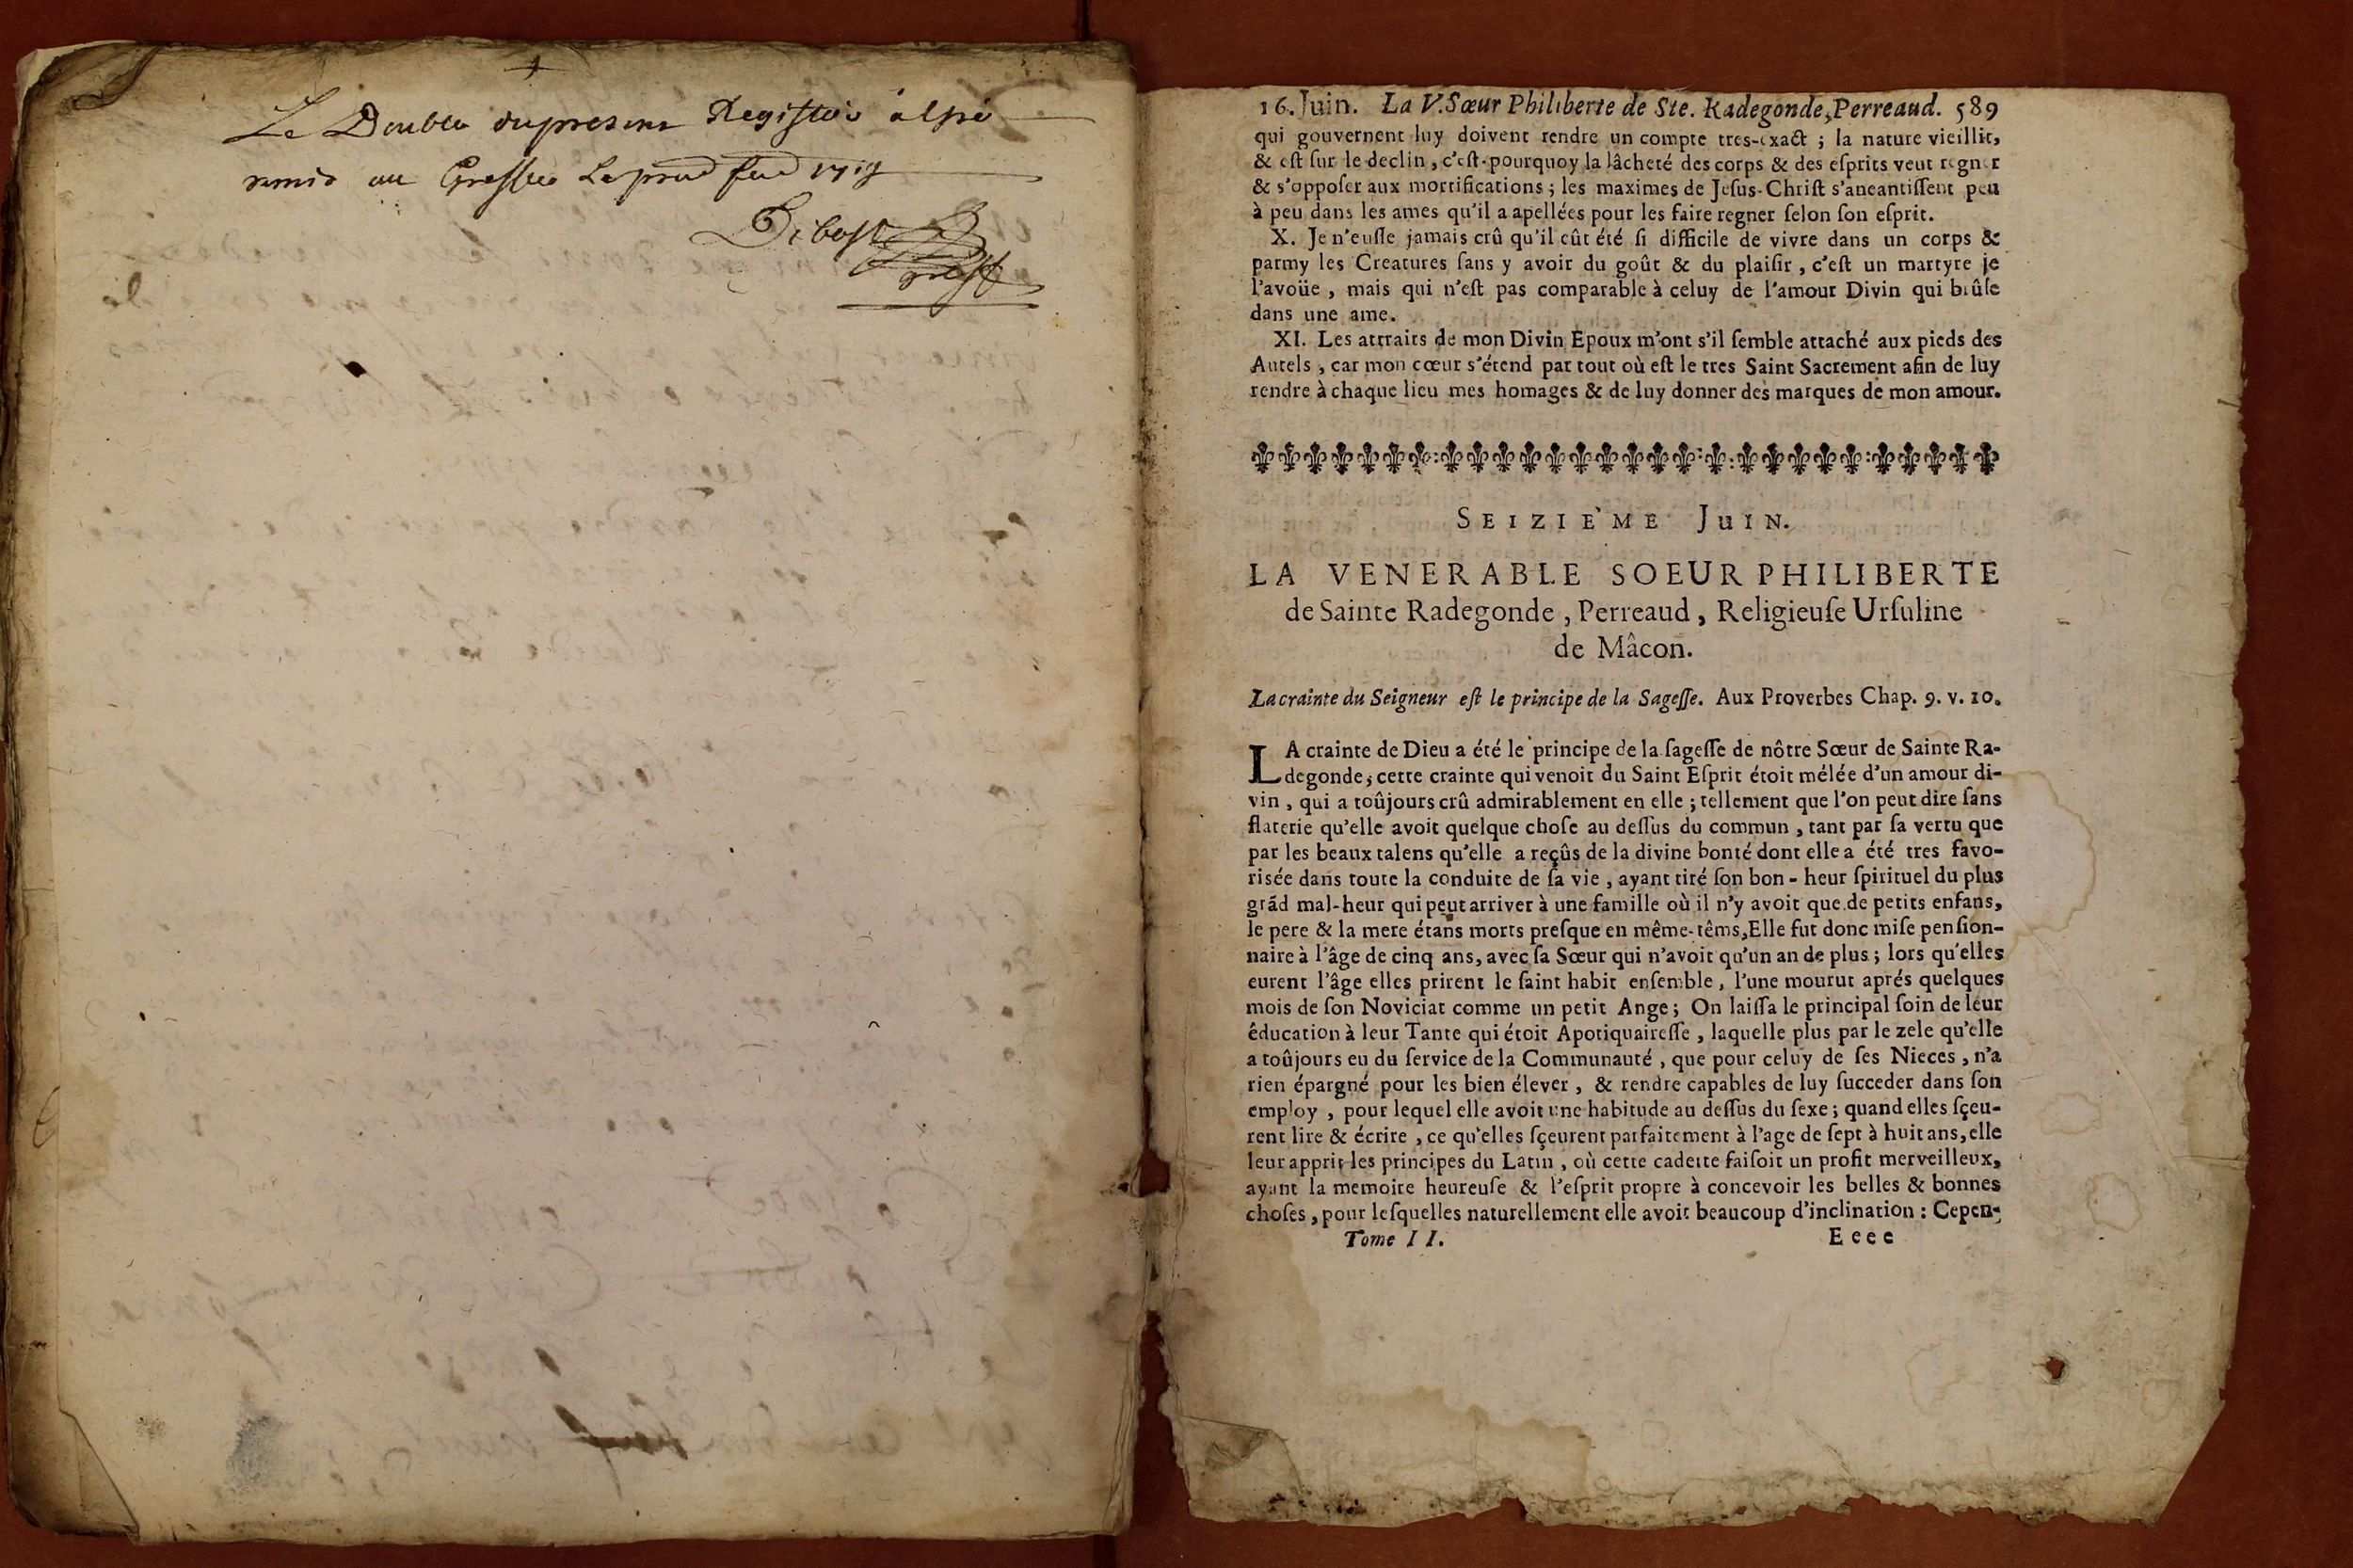 Le Double du present Registre a esté
remis au Greffe Le
Dibost
16. Juin. La V. Sœur Philiberte de Ste. Radegonde, Perreaud. 589
qui gouvernent luy doivent rendre un compte tres-exact ; la nature vieillit,
& eſt ſur le declin, c'eſt-pourquoy la lâcheté des corps & des eſprits veut regner
& s'oppoſer aux mortifications ; les maximes de Jeſus-Chriſt s'aneantiſſent peu
à peu dans les ames qu'il a apellées pour les faire regner ſelon ſon eſprit.
X. Je n'euſſe jamais crû qu'il eût été ſi difficile de vivre dans un corps &
parmy les Creatures ſans y avoir du goût & du plaiſir, c'eſt un martyre je
l'avoüe, mais qui n'eſt pas comparable à celuy de l'amour Divin qui brûſe
dans une ame.
XI. Les attraits de mon Divin Epoux m'ont s'il ſemble attaché aux pieds des
Autels, car mon cœur s'étend par tout où eſt le tres Saint Sacrement afin de luy
rendre à chaque lieu mes homages & de luy donner des marques de mon amour.
SEIZIE'ME JUIN.
LA VENERABLE SOEUR PHILIBERTE
de Sainte Radegonde, Perreaud, Religieuſe Urſuline
de Mâcon.
La crainte du Seigneur eſt le principe de la Sageſſe. Aux Proverbes Chap. 9. v. 10.
LA crainte de Dieu a été le principe de la ſageſſe de nôtre Sœur de Sainte Ra-
degonde; cette crainte qui venoit du Saint Eſprit étoit mélée d'un amour di-
vin, qui a toûjours crû admirablement en elle ; tellement que l'on peut dire ſans
flaterie qu'elle avoit quelque choſe au deſſus du commun, tant par ſa vertu que
par les beaux talens qu'elle a reçûs de la divine bonté dont elle a été tres favo-
risée dans toute la conduite de ſa vie, ayant tiré ſon bon-heur ſpirituel du plus
grãd mal-heur qui peut arriver à une famille où il n'y avoit que de petits enfans,
le pere & la mere étans morts preſque en même-têms, Elle fut donc miſe penſion-
naire à l'âge de cinq ans, avec ſa Sœur qui n'avoit qu'un an de plus ; lors qu'elles
eurent l'âge elles prirent le ſaint habit enſemble, l'une mourut aprés quelques
mois de ſon Noviciat comme un petit Ange; On laiſſa le principal ſoin de leur
éducation à leur Tante qui étoit Apotiquaireſſe, laquelle plus par le zele qu'elle
a toûjours eu du ſervice de la Communauté, que pour celuy de ſes Nieces, n'a
rien épargné pour les bien élever, & rendre capables de luy ſucceder dans ſon
employ, pour lequel elle avoit une habitude au deſſus du ſexe ; quand elles ſçeu-
rent lire & écrire, ce qu'elles ſçeurent parfaitement à l'age de ſept à huit ans, elle
leur apprit les principes du Latin, où cette cadette faiſoit un profit merveilleux,
ayant la memoire heureuſe & l'eſprit propre à concevoir les belles & bonnes
choſes, pour leſquelles naturellement elle avoit beaucoup d'inclination : Cepen-
Tome II. Eeee